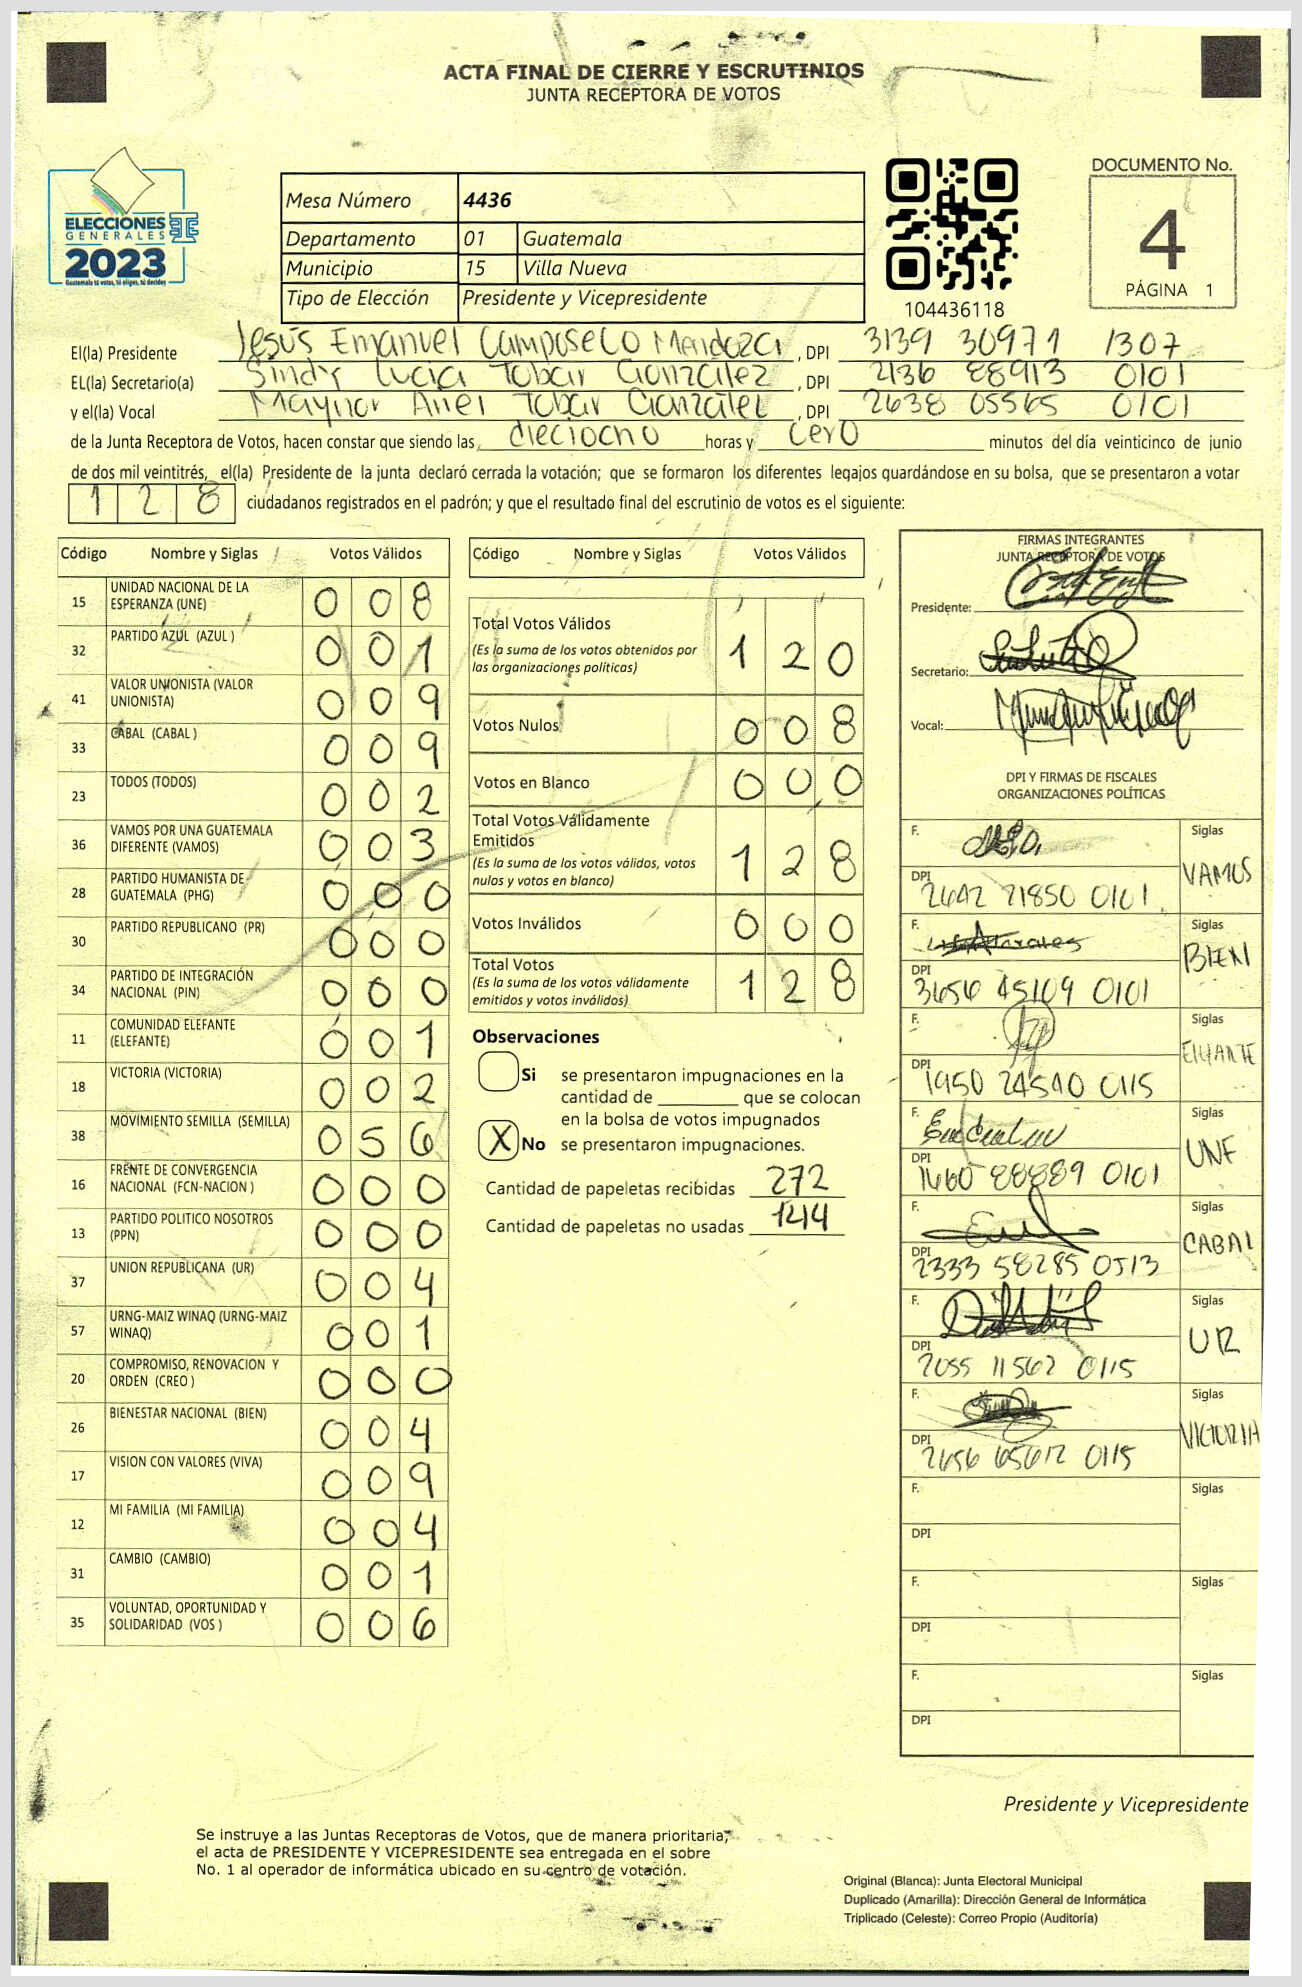 ACTA FINAL DE CIERRE Y ESCRUTINIOS
JUNTA RECEPTORA DE VOTOS
ELECCIONES
GENERALES
2023
Guatemala tú votas, tú eliges, tú decides
Mesa Número 4436
Departamento 01 Guatemala
Municipio 15 Villa Nueva
Tipo de Elección Presidente y Vicepresidente
104436118
DOCUMENTO No.
4
PÁGINA 1
El(la) Presidente Jesús Emanuel Camposeco Mendoza , DPI 3139 30971 1307
EL(la) Secretario(a) Sindy Lucia Tobar González , DPI 2136 88913 0101
y el(la) Vocal Maynor Ariel Tobar González , DPI 2638 05565 0101
de la Junta Receptora de Votos, hacen constar que siendo las, dieciocho horas y cero minutos del día veinticinco de junio
de dos mil veintitrés, el(la) Presidente de la junta declaró cerrada la votación; que se formaron los diferentes legajos guardándose en su bolsa, que se presentaron a votar
128 ciudadanos registrados en el padrón; y que el resultado final del escrutinio de votos es el siguiente:
Código Nombre y Siglas Votos Válidos
15 UNIDAD NACIONAL DE LA ESPERANZA (UNE) 0 0 8
32 PARTIDO AZUL (AZUL ) 0 0 1
41 VALOR UNIONISTA (VALOR UNIONISTA) 0 0 9
33 CABAL (CABAL ) 0 0 9
23 TODOS (TODOS) 0 0 2
36 VAMOS POR UNA GUATEMALA DIFERENTE (VAMOS) 0 0 3
28 PARTIDO HUMANISTA DE GUATEMALA (PHG) 0 0 0
30 PARTIDO REPUBLICANO (PR) 0 0 0
34 PARTIDO DE INTEGRACIÓN NACIONAL (PIN) 0 0 0
11 COMUNIDAD ELEFANTE (ELEFANTE) 0 0 1
18 VICTORIA (VICTORIA) 0 0 2
38 MOVIMIENTO SEMILLA (SEMILLA) 0 5 6
16 FRENTE DE CONVERGENCIA NACIONAL (FCN-NACION ) 0 0 0
13 PARTIDO POLITICO NOSOTROS (PPN) 0 0 0
37 UNION REPUBLICANA (UR) 0 0 4
57 URNG-MAIZ WINAQ (URNG-MAIZ WINAQ) 0 0 1
20 COMPROMISO, RENOVACION Y ORDEN (CREO ) 0 0 0
26 BIENESTAR NACIONAL (BIEN) 0 0 4
17 VISION CON VALORES (VIVA) 0 0 9
12 MI FAMILIA (MI FAMILIA) 0 0 4
31 CAMBIO (CAMBIO) 0 0 1
35 VOLUNTAD, OPORTUNIDAD Y SOLIDARIDAD (VOS ) 0 0 6
Código Nombre y Siglas Votos Válidos
Total Votos Válidos 1 2 0
(Es la suma de los votos obtenidos por
las organizaciones políticas)
Votos Nulos 0 0 8
Votos en Blanco 0 0 0
Total Votos Válidamente
Emitidos 1 2 8
(Es la suma de los votos válidos, votos
nulos y votos en blanco)
Votos Inválidos 0 0 0
Total Votos 1 2 8
(Es la suma de los votos válidamente
emitidos y votos inválidos)
Observaciones
Si se presentaron impugnaciones en la
cantidad de ________ que se colocan
en la bolsa de votos impugnados
X No se presentaron impugnaciones.
Cantidad de papeletas recibidas 272
Cantidad de papeletas no usadas 144
FIRMAS INTEGRANTES
JUNTA RECEPTORA DE VOTOS
Presidente:
Secretario:
Vocal:
DPI Y FIRMAS DE FISCALES
ORGANIZACIONES POLÍTICAS
F. Siglas
VAMOS
DPI 2642 21850 0101
F. Siglas
BIEN
DPI 3656 45109 0101
F. Siglas
DPI 1950 24540 0115
F. Siglas
UNE
DPI 1660 88889 0101
F. Siglas
CABAL
DPI 2333 58285 0513
F. Siglas
UR
DPI 2055 11562 0115
F. Siglas
VICTORIA
DPI 2656 65612 0115
F. Siglas
DPI
F. Siglas
DPI
F. Siglas
DPI
Presidente y Vicepresidente
Se instruye a las Juntas Receptoras de Votos, que de manera prioritaria,
el acta de PRESIDENTE Y VICEPRESIDENTE sea entregada en el sobre
No. 1 al operador de informática ubicado en su centro de votación.
Original (Blanca): Junta Electoral Municipal
Duplicado (Amarilla): Dirección General de Informática
Triplicado (Celeste): Correo Propio (Auditoría)